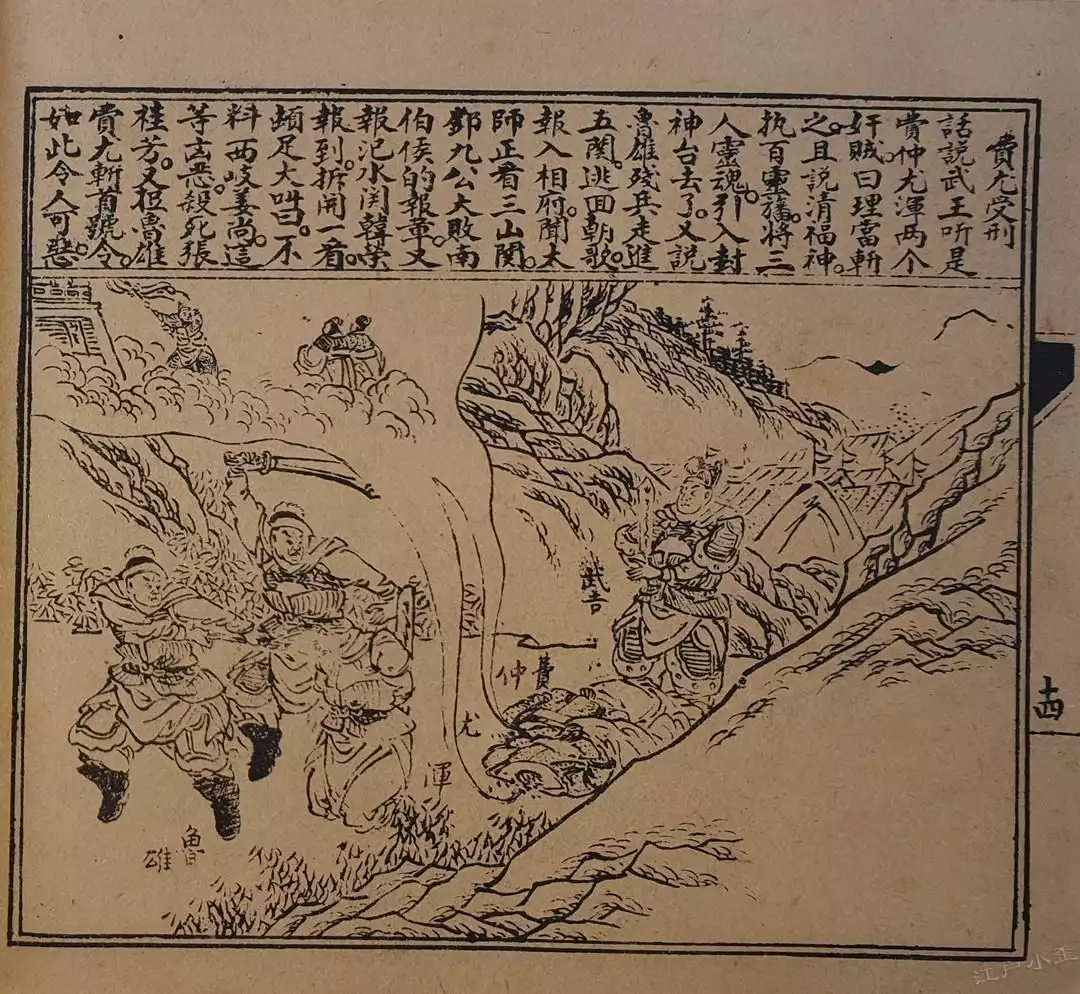 費尤受刑
話說武王听是
費仲尤渾两个
奸賊曰理當斬
之。且說清福神。
执百靈旛。將三
人靈魂。引入封
神台去了。又說
魯雄殘兵走進
五関。逃回朝歌。
報入相府。聞太
師正看三山関。
鄧九公大敗南
伯侯的報章。又
報汜水関韓榮
報到。拆開一看。
頓足大呌曰。不
料西岐姜尚。這
等凶惡。殺死張
桂芳。又捉魯雄
費尤斬首號令。
如此令人可惡
武吉
費仲
尤渾
魯雄
十四
江户小正